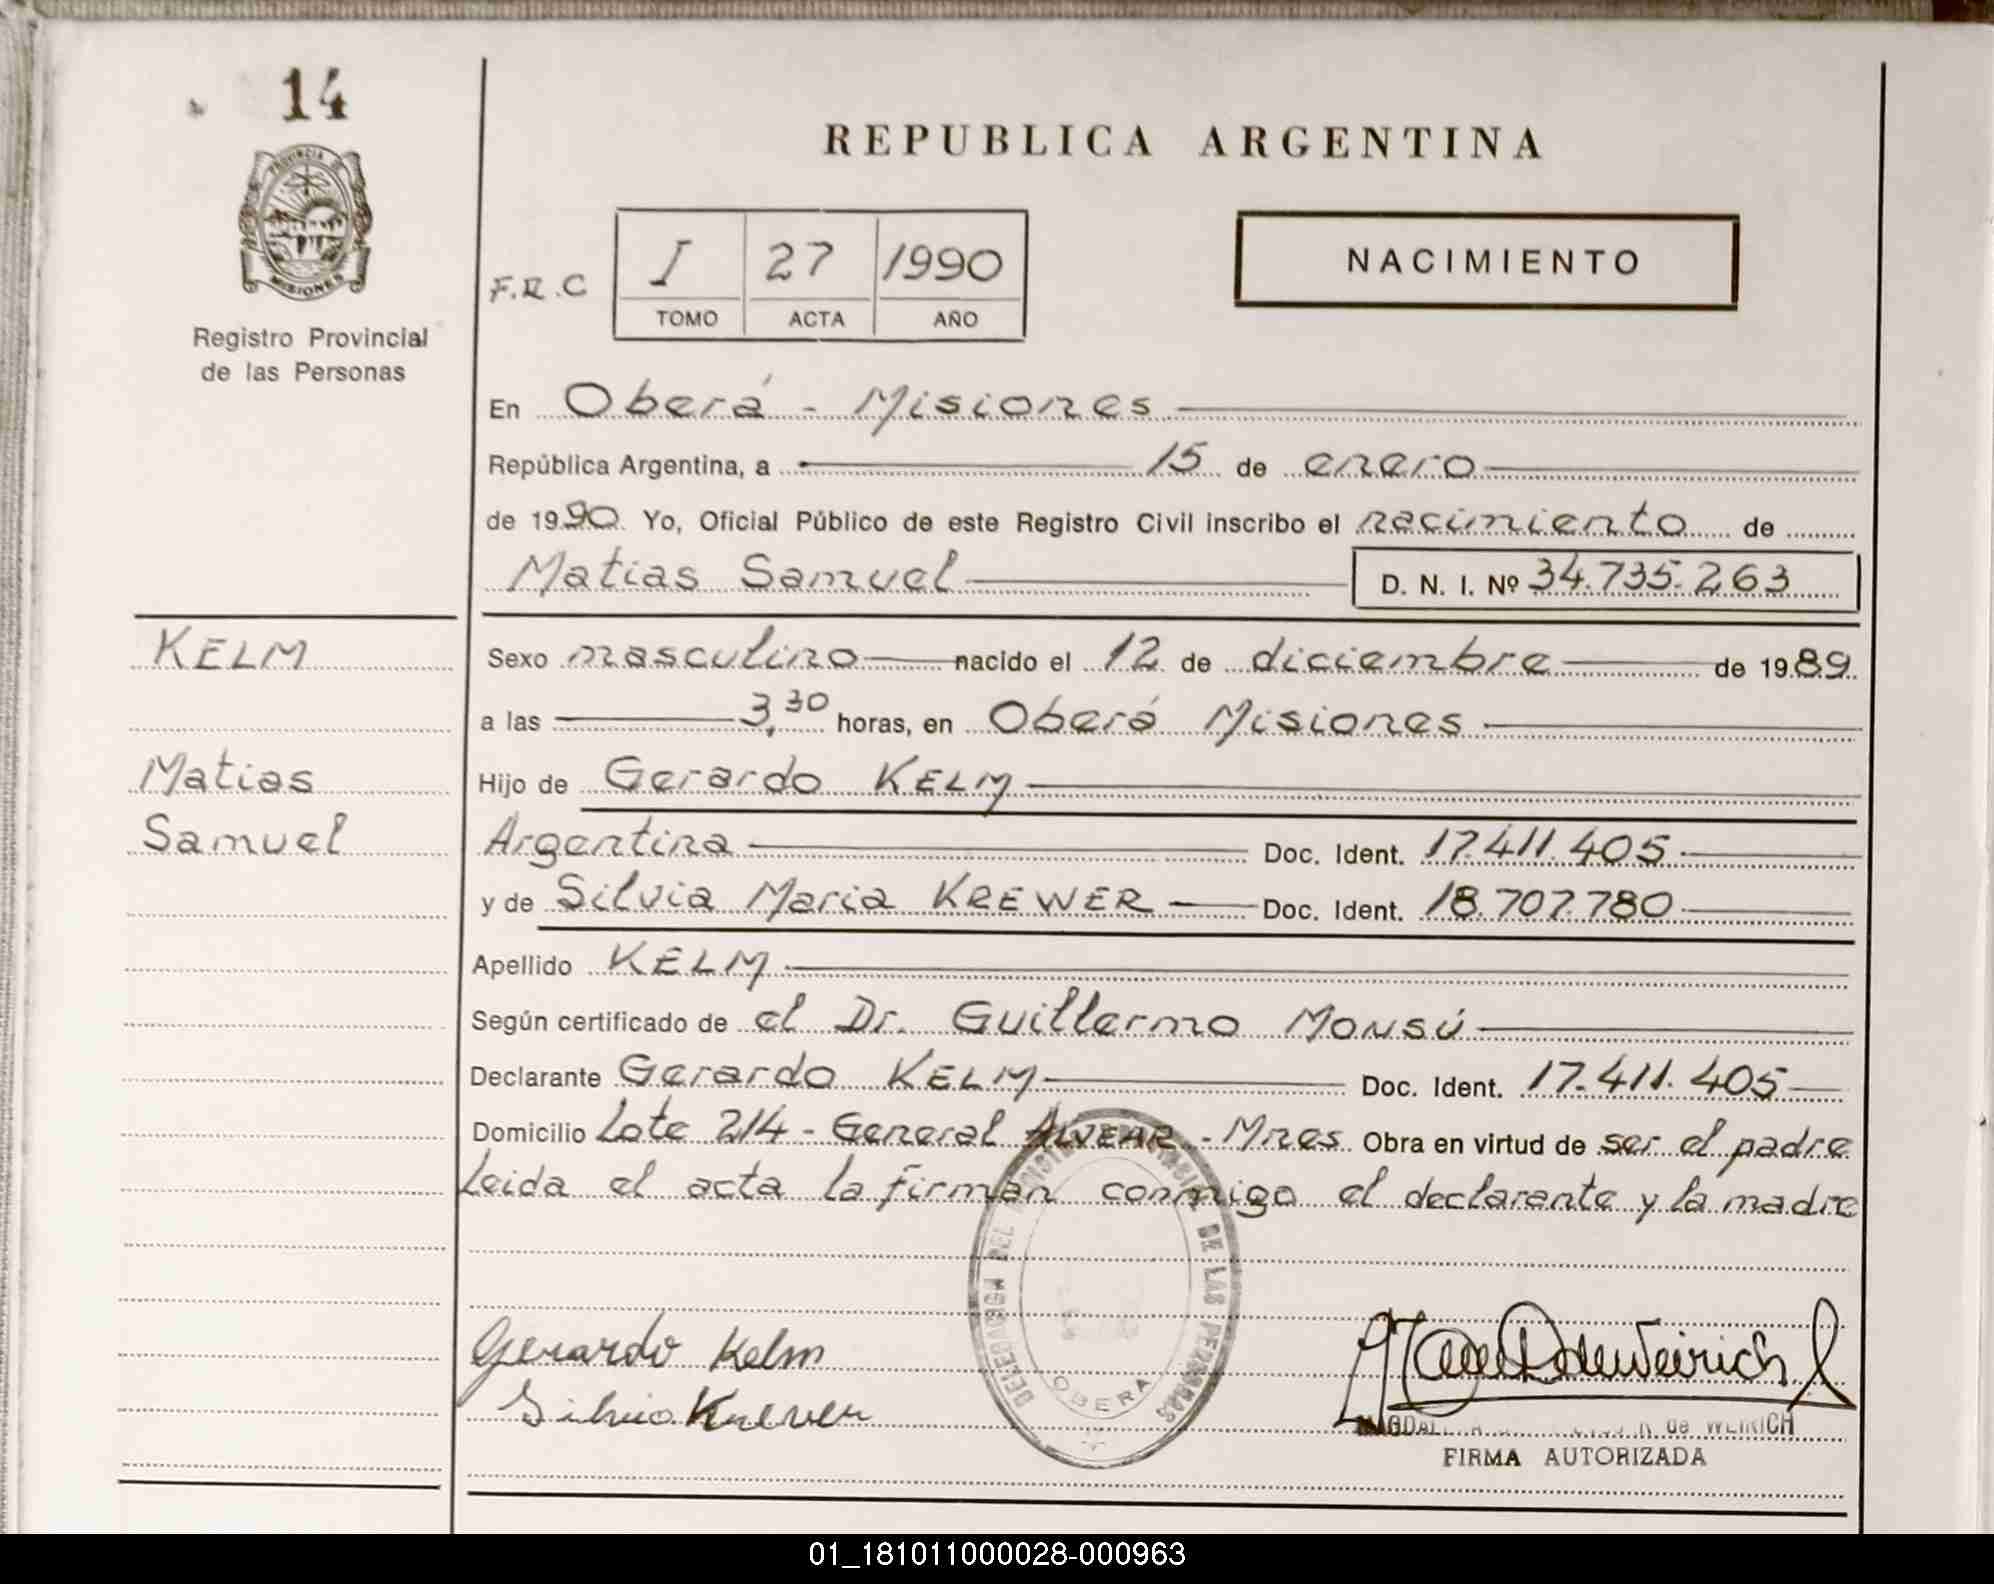 14
PROVINCIA DE
MISIONES
Registro Provincial
de las Personas
REPUBLICA ARGENTINA
F.R.C
I 27 1990
TOMO ACTA AÑO
NACIMIENTO
En Oberá - Misiones
República Argentina, a 15 de enero
de 1990 Yo, Oficial Público de este Registro Civil inscribo el nacimiento de
Matias Samuel D. N. I. Nº 34.735.263
KELM
Matias
Samuel
Sexo masculino nacido el 12 de diciembre de 1989
a las 3,30 horas, en Oberá Misiones
Hijo de Gerardo KELM
Argentina Doc. Ident. 17.411.405
y de Silvia Maria KREWER Doc. Ident. 18.707.780
Apellido KELM
Según certificado de el Dr. Guillermo Monsú
Declarante Gerardo KELM Doc. Ident. 17.411.405
Domicilio Lote 214 - General ALVEAR - Mnes Obra en virtud de ser el padre
Leida el acta la firman conmigo el declarante y la madre
DELEGACION DEL REGISTRO PROVINCIAL DE LAS PERSONAS
OBERA
Gerardo Kelm
Silvia Krever
de WEIRICH
FIRMA AUTORIZADA
01_181011000028-000963